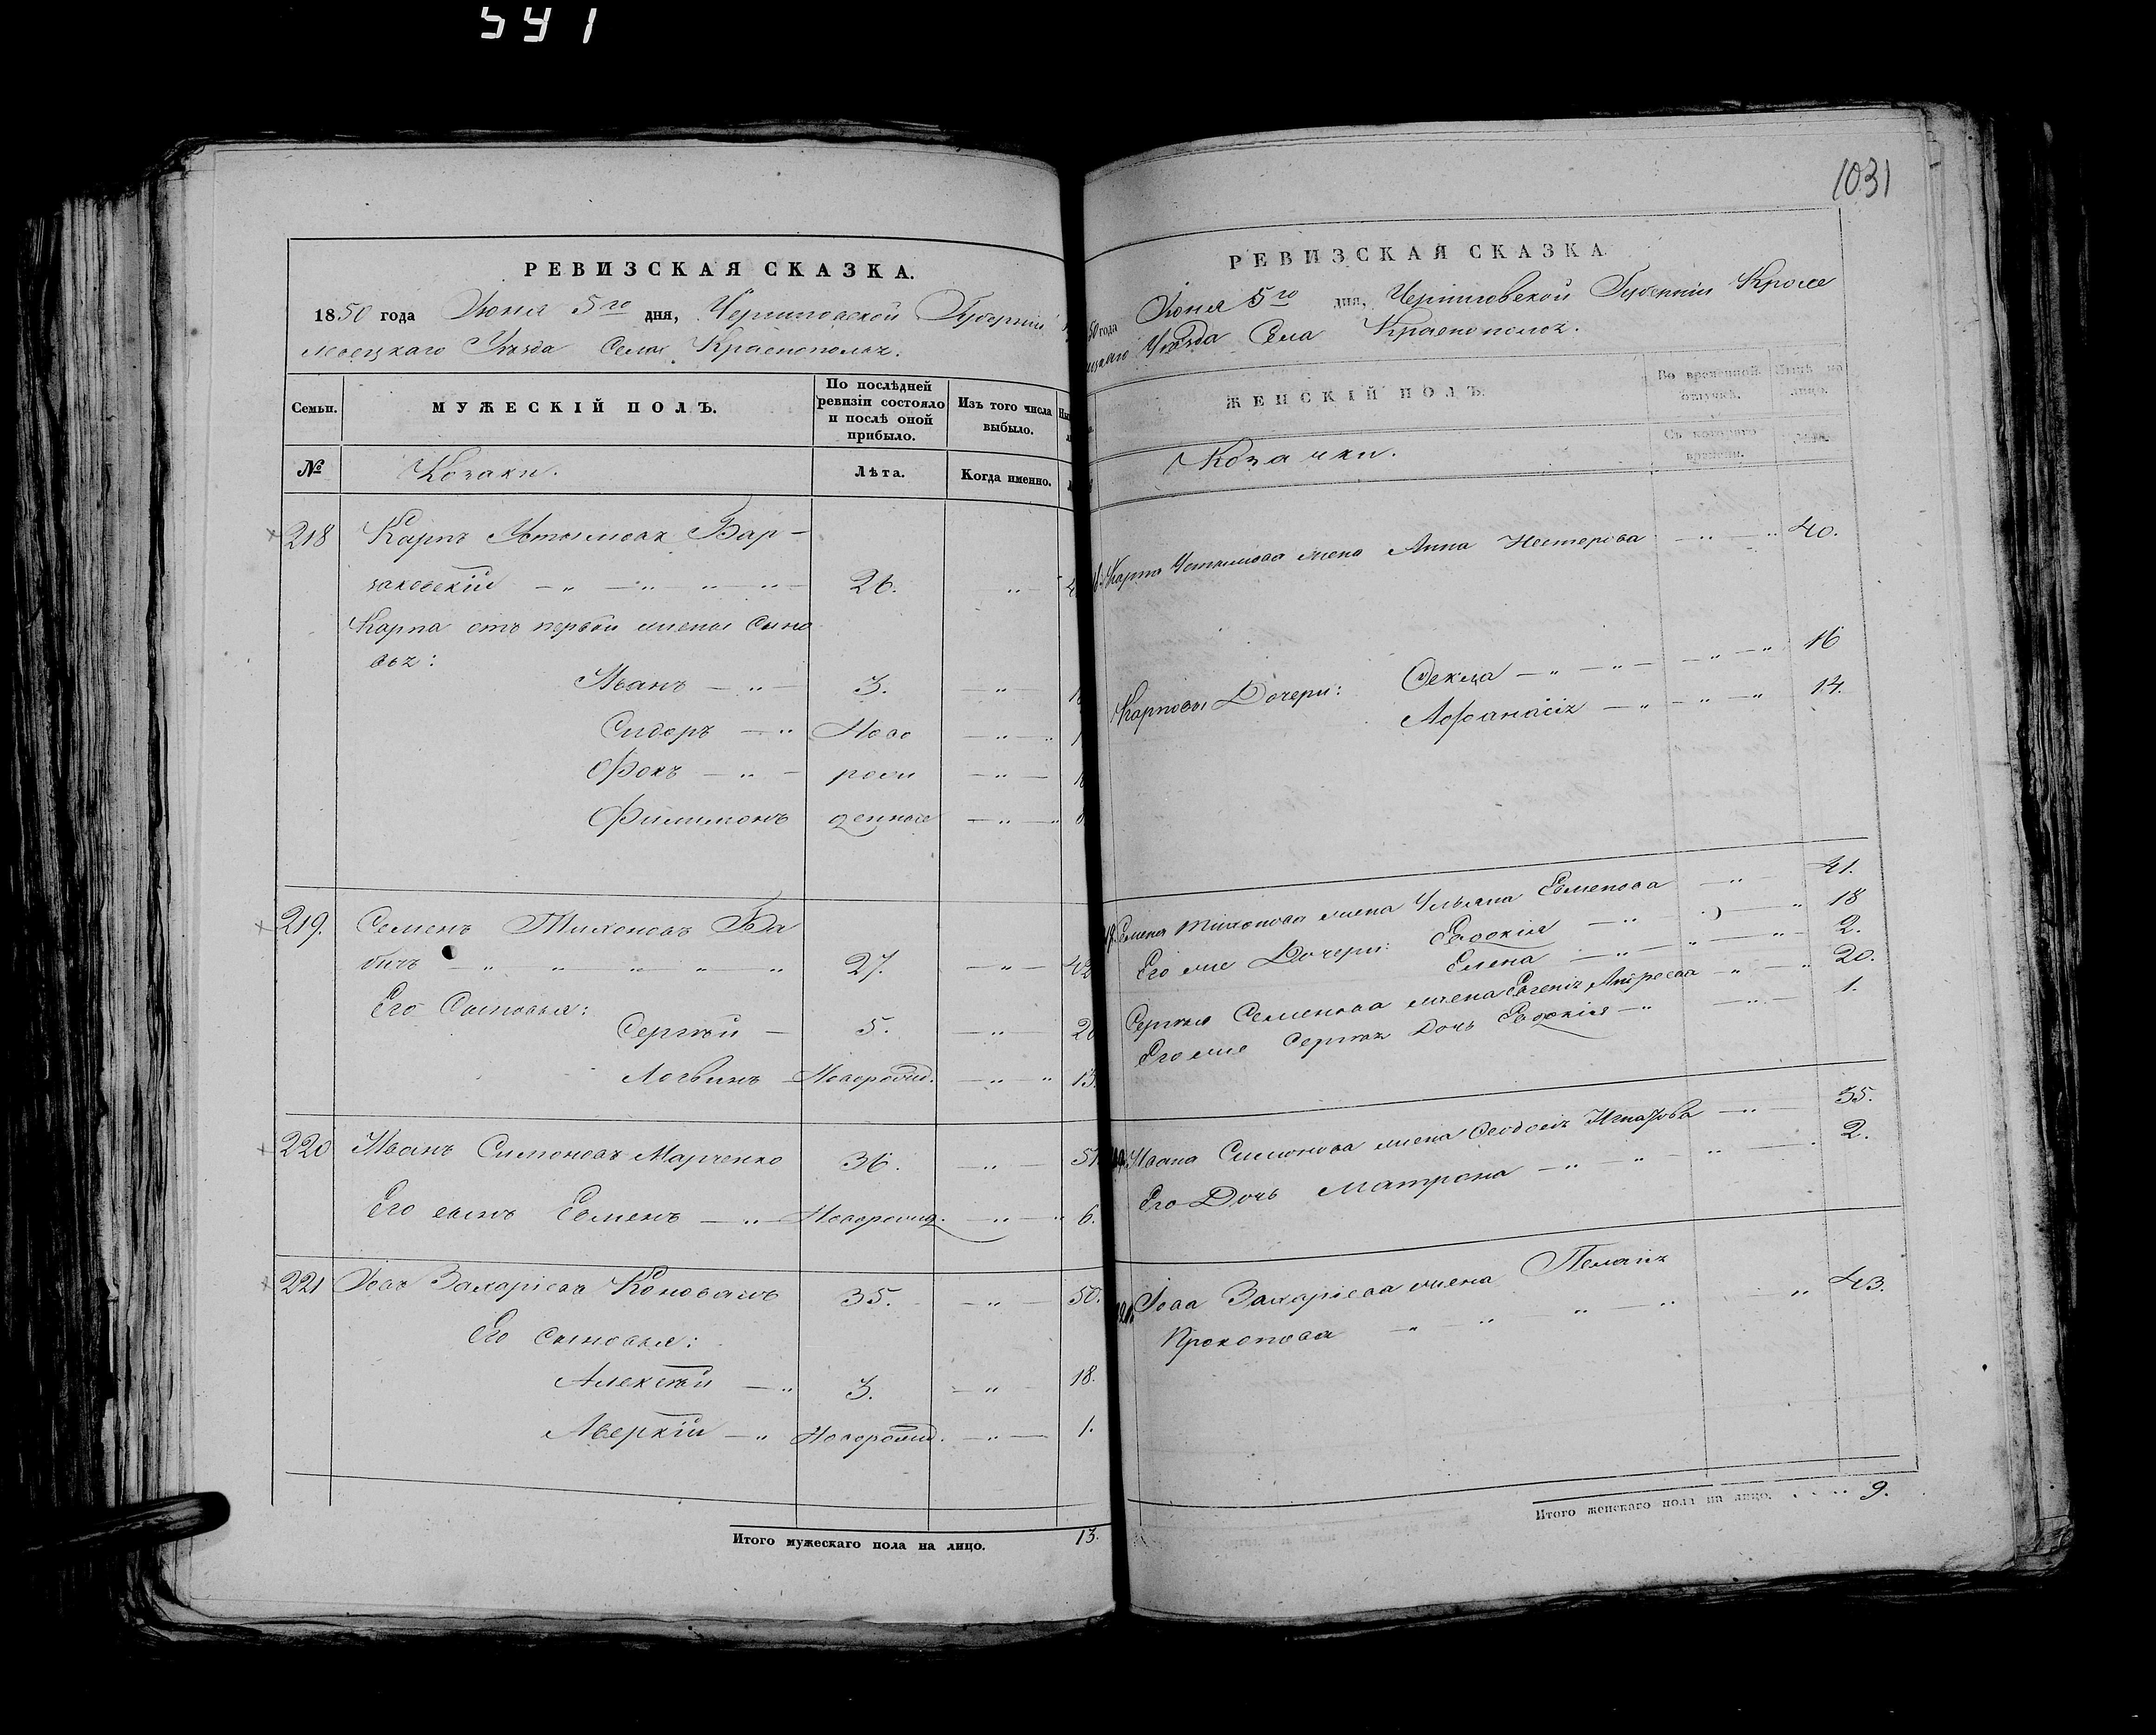 541
РЕВИЗСКАЯ СКАЗКА.
1850 года Июня 5го дня, Черниговской Губерніи
левецкаго Уѣзда Села Краснополья.
Семьи.
МУЖЕСКІЙ ПОЛЪ.
По послѣдней ревизіи состояло и послѣ оной прибыло.
Изъ того числа выбыло.
№
Козаки.
Лѣта.
Когда именно.
218 Карпъ Устимовъ Бар-
заковскій 26.
Карпа отъ первой жены сыно
вья:
Иванъ 3.
Сидоръ Ново
Фокъ рож
Филимонъ денные
219. Семенъ Тихоновъ Ба
бичъ 27. 42
Его Сыновья:
Сергѣй 5. 20
Логвинъ Новорожд. 13.
220 Иванъ Симоновъ Марченко 36. 51
Его сынъ Евменъ Новорожд. 6.
221 Іовъ Захаріевъ Коновалъ 35. 50.
Его сыновья:
Алексѣй 3. 18.
Аверкій Новорожд. 1.
Итого мужескаго пола на лицо. 13.
1031
РЕВИЗСКАЯ СКАЗКА
50 года Июня 5го дня, Черниговской Губерніи Кроле
вецкаго Уѣзда Села Краснополья.
ЖЕНСКІЙ ПОЛЪ.
Во временной отлучкѣ.
Нынѣ на лицо.
Козачки.
Съ котораго времени.
Лѣта.
Карпа Устимова жена Анна Нестерова 40.
Карповы Дочери: Фекла 16
Афанасія 14.
Семена Тихонова жена Ульяна Евменова 41.
Его же Дочери: Евдокія 18
Елена 2.
Сергѣя Семенова жена Евгенія Андреева 20.
Его же Сергѣя Дочь Евдокія 1.
Ивана Симонова жена Феодосія Игнатова 35.
Его Дочь Матрона 2.
Іова Захаріева жена Пелагія
Прокопова 43.
Итого женскаго пола на лицо. 9.